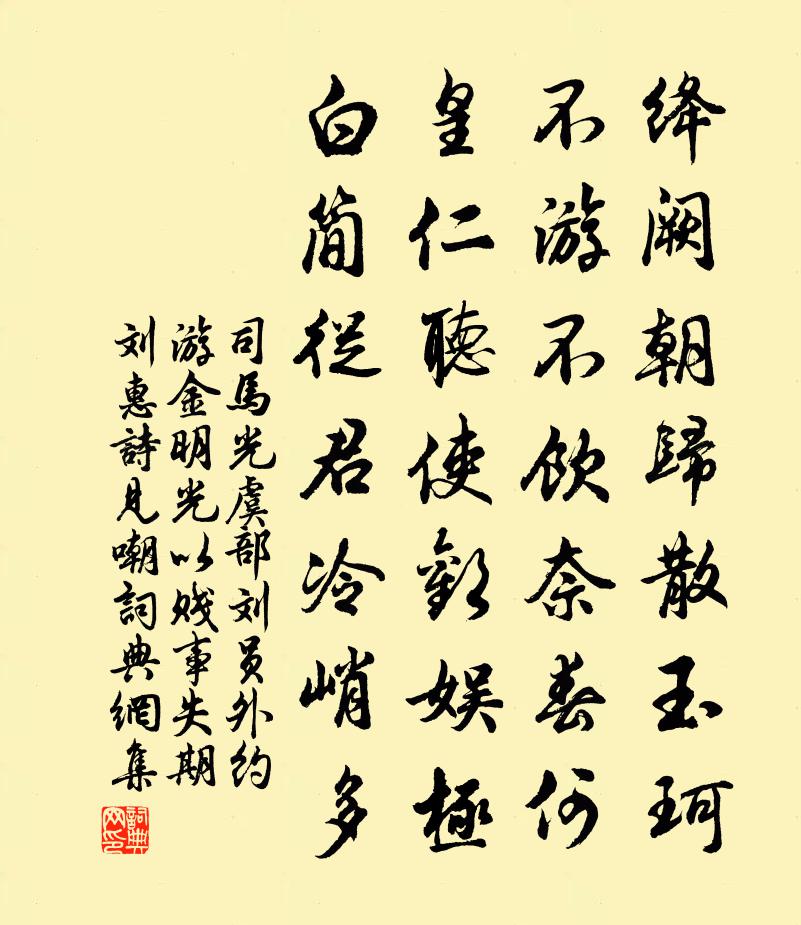 绛阙朝歸散玉珂
不游不飲奈春何
皇仁聽使歡娱極
白简從君冷峭多
司馬光虞部刘員外约
游金明光以贱事失期
刘惠詩見嘲詞典網集
詞典网印